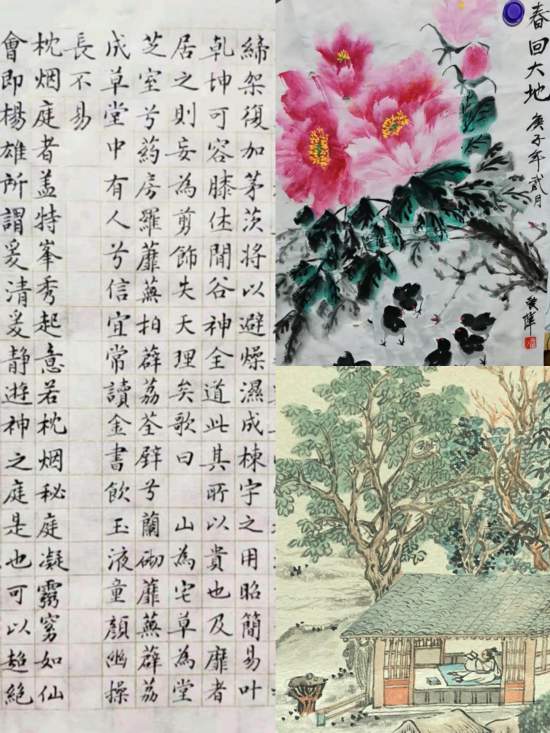 締架復加茅茨將以避燥濕成棟宇之用昭簡易叶
乾坤可容膝休閒谷神全道此其所以貴也及靡者
居之則妄為剪飾失天理矣歌曰 山為宅草為堂
芝室兮葯房羅蘼蕪拍薜荔荃壁兮蘭砌蘼蕪薜荔
成草堂中有人兮信宜常讀金書飲玉液童顏幽操
長不易
枕烟庭者盖特峯秀起意若枕烟秘庭凝霧窅如仙
會即楊雄所謂爰清爰静遊神之庭是也可以超絕
春回大地
庚子年贰月